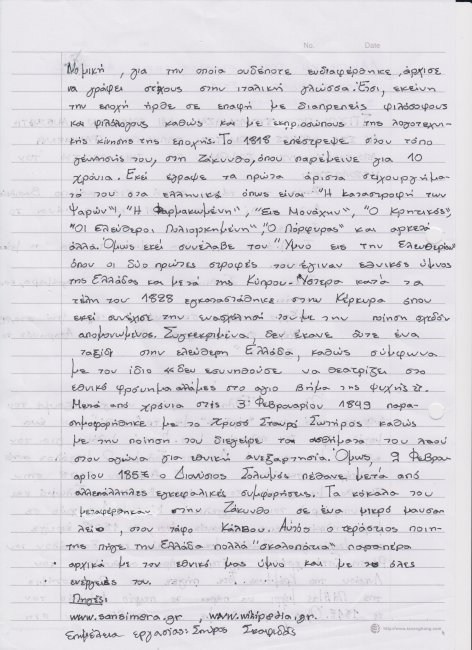 No. Date
Νομική, για την οποία ουδέποτε ενδιαφέρθηκε, άρχισε
να γράφει στίχους στην ιταλική γλώσσα. Έτσι, εκείνη
την εποχή ήρθε σε επαφή με διαπρεπείς φιλόσοφους
και φιλόλογους καθώς και με εκπροσώπους της λογοτεχνι-
κής κίνησης της εποχής. Το 1818 επέστρεψε στον τόπο
γέννησής του, στη Ζάκυνθο, όπου παρέμεινε για 10
χρόνια. Εκεί έγραψε τα πρώτα άριστα στιχουργήμα-
τά του στα ελληνικά όπως είναι "Η καταστροφή των
Ψαρών", "Η Φαρμακωμένη", "Εις Μοναχήν", "Ο Κρητικός",
"Οι Ελεύθεροι Πολιορκημένη", "Ο Πόρφυρας" και αρκετά
άλλα. Όμως εκεί συνέλαβε τον "Ύμνο εις την Ελευθερία"
όπου οι δύο πρώτες στροφές του έγιναν εθνικός ύμνος
της Ελλάδας και μετά της Κύπρου. Ύστερα κατά τα
τέλη του 1828 εγκαταστάθηκε στην Κέρκυρα όπου
εκεί συνέχισε την ενασχόλησή του με την ποίηση σχεδόν
απομονωμένος. Συγκεκριμένα, δεν έκανε ούτε ένα
ταξίδι στην ελεύθερη Ελλάδα, καθώς σύμφωνα
με τον ίδιο «δεν εσυνηθούσε να θεατρίζει στο
εθνικό φρόνημα αλλά μες στο αγιο βήμα της ψυχής».
Μετά από χρόνια στις 3 Φεβρουαρίου 1849 παρα-
σημοφορήθηκε με το Χρυσό Σταυρό Σωτήρος καθώς
με την ποίηση του διεγείρε τα αισθήματα του λαού
στον αγώνα για εθνική ανεξαρτησία. Όμως, 9 Φεβρου-
αρίου 1857 ο Διονύσιος Σολωμός πέθανε μετά από
αλλεπάλληλες εγκεφαλικές συμφορήσεις. Τα κόκαλα του
μεταφέρθηκαν στην Ζάκυνθο σε ένα μικρό μαυσω-
λείο, στον τάφο Κάλβου. Αυτός ο τεράστιος ποιη-
της πήγε την Ελλάδα πολλά "σκαλοπάτια" παραπέρα
αρχικά με τον εθνικό μας ύμνο και με τις όλες
ενέργειές του.
Πηγές:
www.sansimera.gr, www.wikipedia.gr.
Επιμέλεια εργασίας: Σπύρος